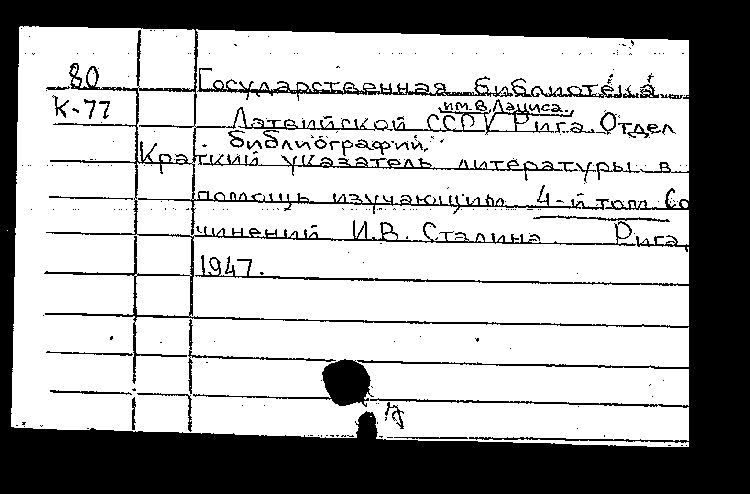 80
К-77
Государственная библиотека
им. В. Лациса,
Латвийской ССР, Рига. Отдел
библиографии.
Краткий указатель литературы в
помощь изучающим 4-й том Со
чинений И.В. Сталина. Рига,
1947.